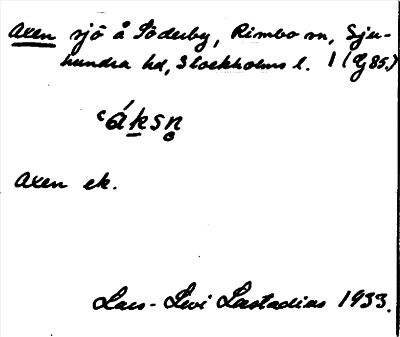 Axen sjö å Söderby, Rimbo sn, Sju-
hundra hd, Stockholms l. 1 (Gj 85.)
‘áksn̥
Axen ek.
Lars-Levi Læstadius 1933.